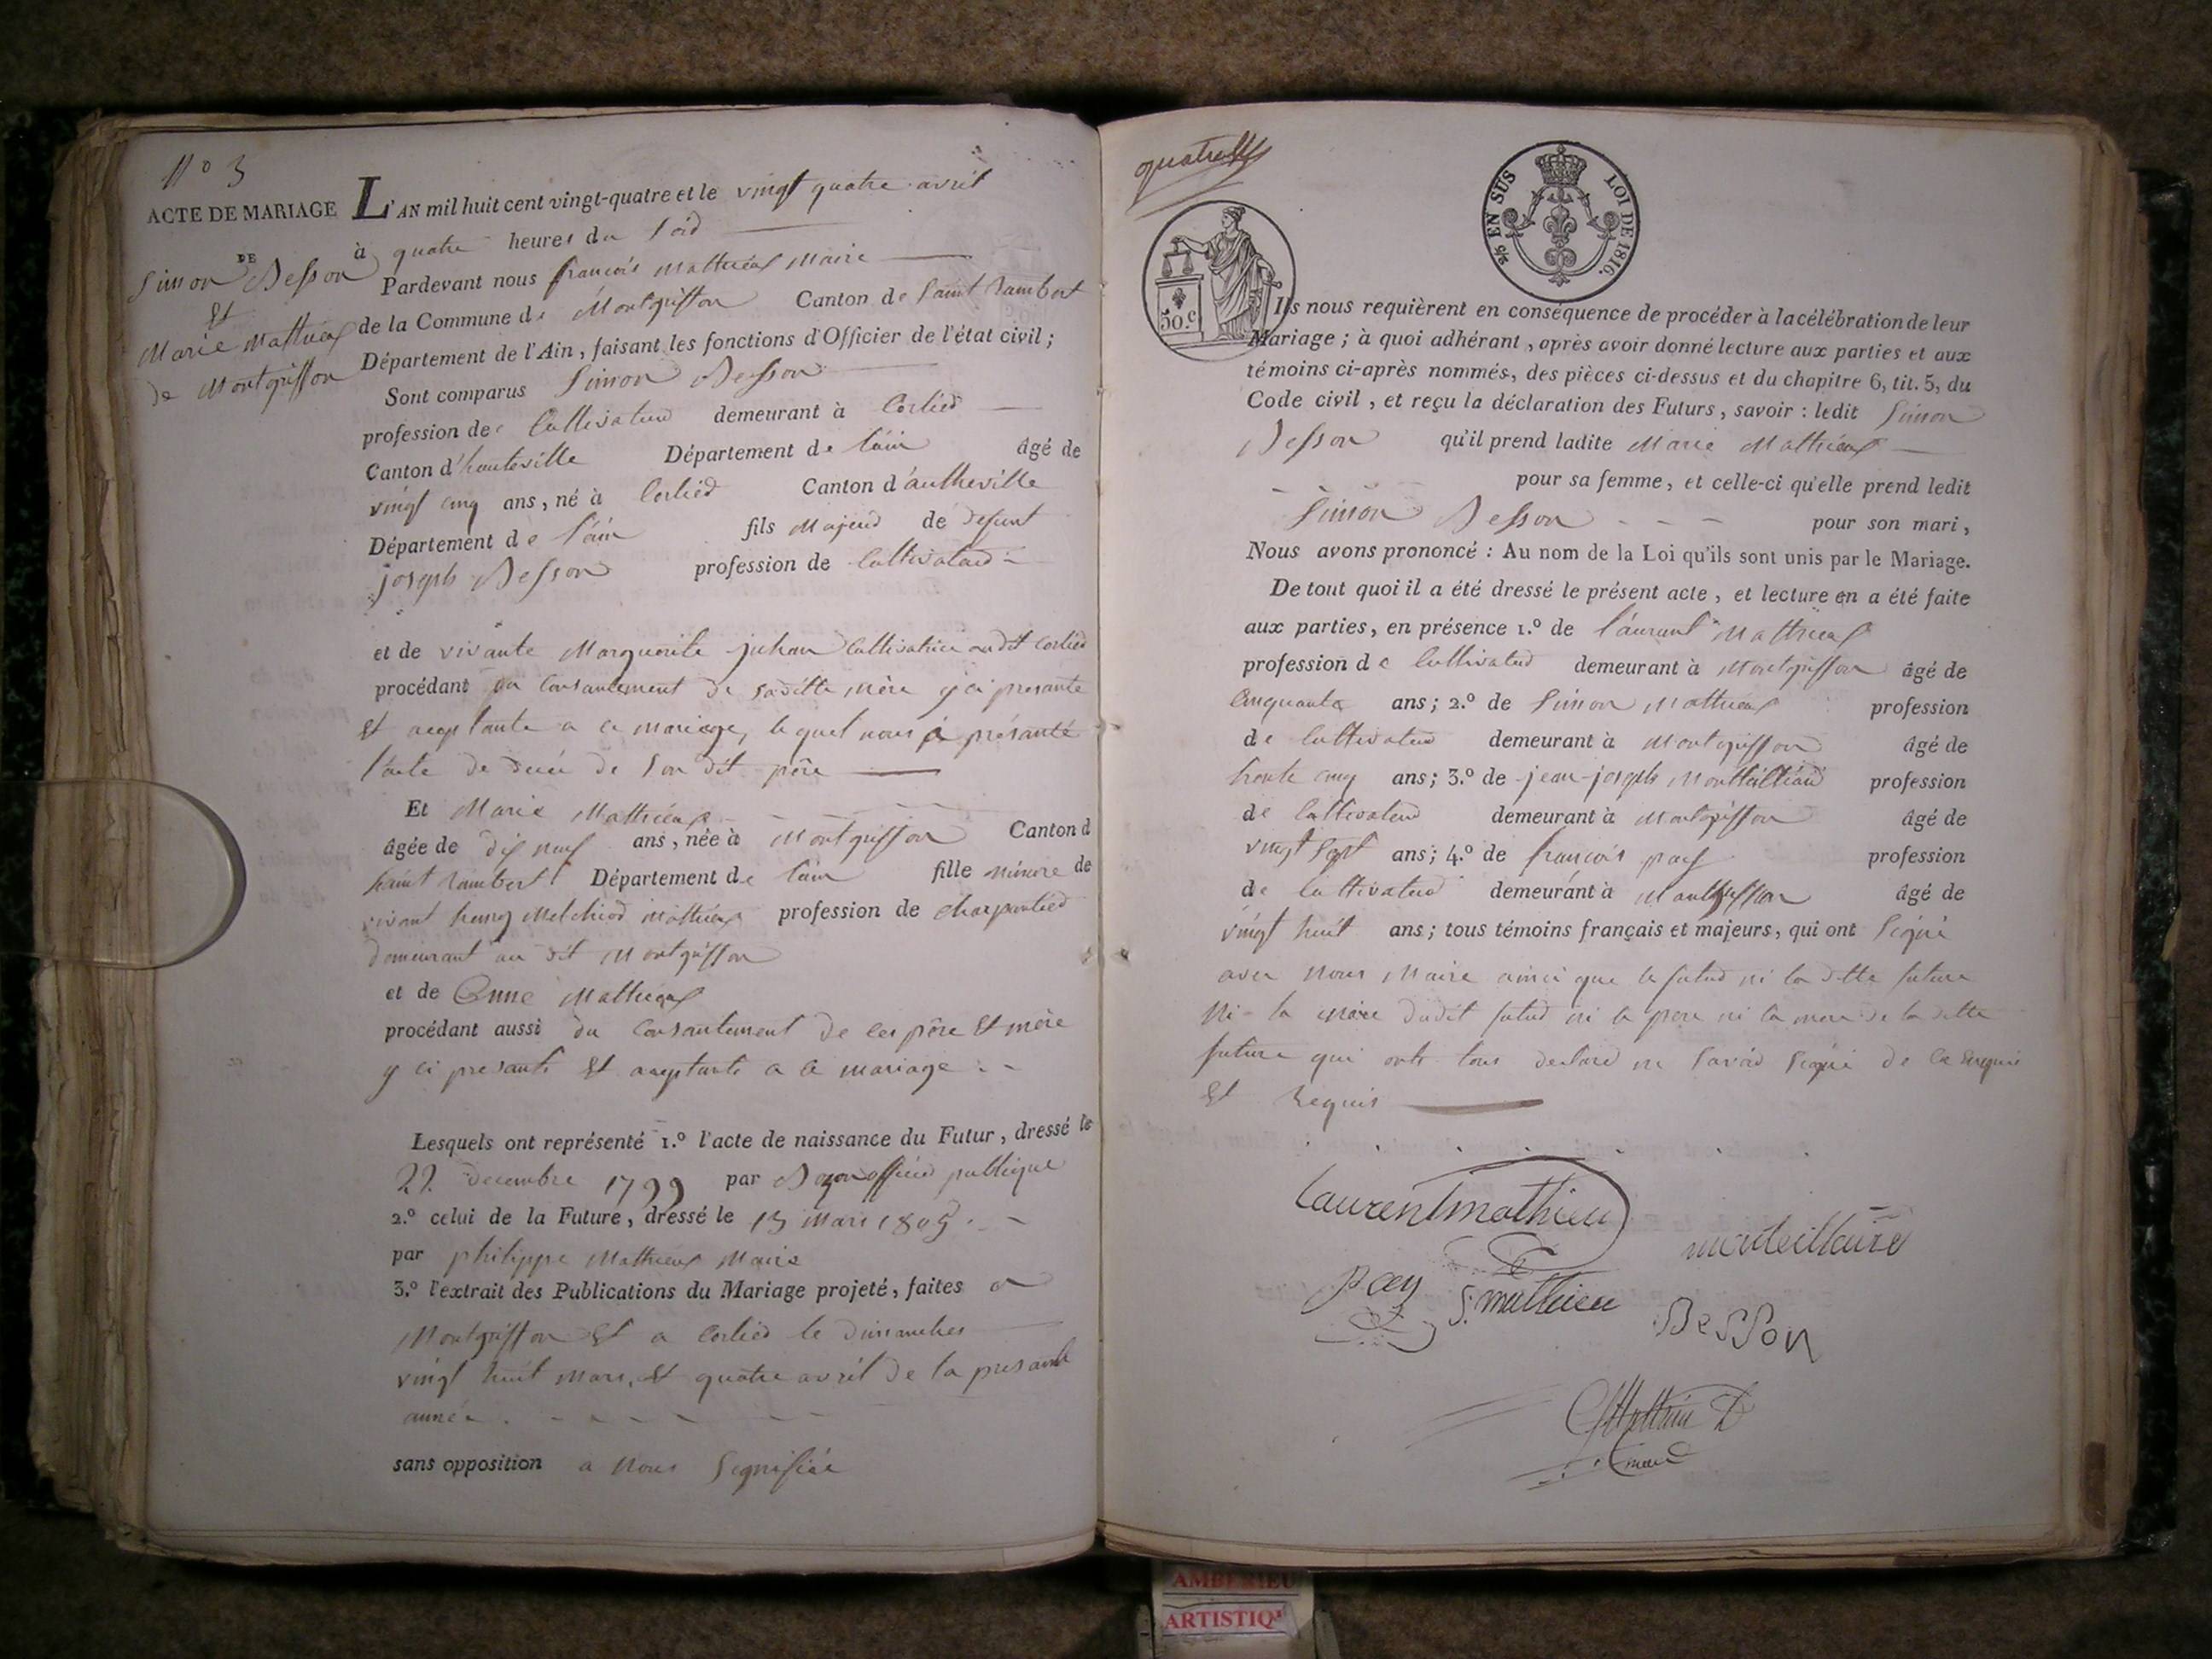 N° 3
ACTE DE MARIAGE
DE
Simon Besson
Et
Marie Mathieux
de Montgriffon
L'AN mil huit cent vingt-quatre et le vingt quatre avril
à quatre heures du soir
Pardevant nous françois Mathieux Maire
de la Commune de Montgriffon Canton de Saint Rambert
Département de l'Ain, faisant les fonctions d'Officier de l'état civil;
Sont comparus Simon Besson
profession de Cultivateur demeurant à Corlier
Canton d'hauteville Département de l'ain âgé de
vingt cinq ans, né à Corlier Canton d'autheville
Département de l'ain fils Majeur de defunt
joseph Besson profession de Cultivateur
et de vivante Marguerite juhan Cultivatrice audit Corlier
procédant du Consantement de sa ditte mère y ci presante
Et aceptante a ce mariage, lequel nous à présanté
l'acte de decé de Son dit père
Et Marie Mathieux
âgée de dix neuf ans, née à Montgriffon Canton d
Saint Rambert Département de l'ain fille minore de
vivant henry Melchior Mathieux profession de charpantier
demeurant au dit Montgriffon
et de Anne Mathieux
procédant aussi du Consantement de ces père Et mère
y ci presants Et aceptants a ce mariage
Lesquels ont représenté 1.º l'acte de naissance du Futur, dressé le
22 decembre 1799 par officier publique
2.º celui de la Future, dressé le 13 Mars 1805
par philippe Mathieux Maire
3.º l'extrait des Publications du Mariage projeté, faites a
Montgriffon Et a Corlier le dimanches
vingt huit Mars, Et quatre avril de la presante
année
sans opposition a nous Signifiée
50.c
2/5 EN SUS
LOI DE 1816.
Ils nous requièrent en conséquence de procéder à la célébration de leur
Mariage; à quoi adhérant, après avoir donné lecture aux parties et aux
témoins ci-après nommés, des pièces ci-dessus et du chapitre 6, tit. 5, du
Code civil, et reçu la déclaration des Futurs, savoir: ledit Simon
Besson qu'il prend ladite Marie Mathieux
pour sa femme, et celle-ci qu'elle prend ledit
Simon Besson pour son mari,
Nous avons prononcé: Au nom de la Loi qu'ils sont unis par le Mariage.
De tout quoi il a été dressé le présent acte, et lecture en a été faite
aux parties, en présence 1.º de l'aurant Mathieux
profession de Cultivateur demeurant à Montgriffon âgé de
Cinquante ans; 2.º de Simon Mathieux profession
de Cultivateur demeurant à Montgriffon âgé de
trante cinq ans; 3.º de jean joseph profession
de Cultivateur demeurant à Montgriffon âgé de
vingt sept ans; 4.º de françois profession
de Cultivateur demeurant à Montgriffon âgé de
vingt huit ans; tous témoins français et majeurs, qui ont Signé
avec nous Maire ainci que le futur ni la ditte future
Ni la mère dudit futur ni le pere ni la mere de la ditte
future qui onts tous declaré ne Savoir Signé de ce Enquis
Et Requis
Laurent mathieu
pay
S. mathieu
BesSon